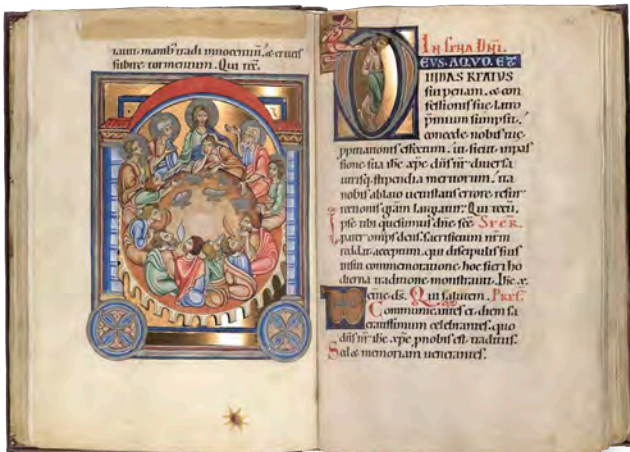 tium manib; tradi innocentū, & crucis
subire tormentum. Qui tec̄.
IN CENA DNI.
EVS. A QVO. ET
IUDAS REATUS
sui penam, & con
fessionis sue latro
p̄mium sumpsit,
concede nobis tue
ppitiationis effectum, ut sicut in pas
sione sua ihc xpc dn̄s nr̄ diversa
utrisq; stipendia meritorum, ita
nobis ablato vetustatis errore, resur
rectionis gr̄am largiatur. Qui tecū.
Ipse tibi quesumus dn̄e sc̄e SECR.
pater omp̄s deus, sacrificium nr̄m
reddat acceptum, qui discipulis suis
in sui commemoratione hoc fieri ho
dierna traditione monstravit. Ihc x̄.
ds. Qui salutem. PREF.
Communicantes et diem sa
cratissimum celebrantes, quo
dn̄s nr̄ ihc xpc p nobis est traditus.
Sed & memoriam venerantes.